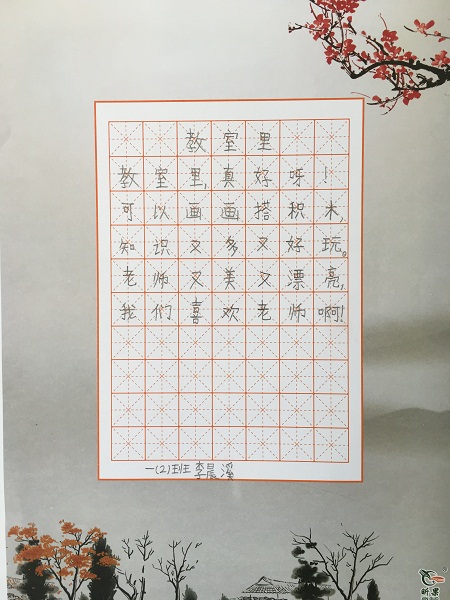 教室里
教室里,真好呀!
可以画画搭积木,
知识又多又好玩。
老师又美又漂亮,
我们喜欢老师啊!
一(2)班 李晨溪
昕果